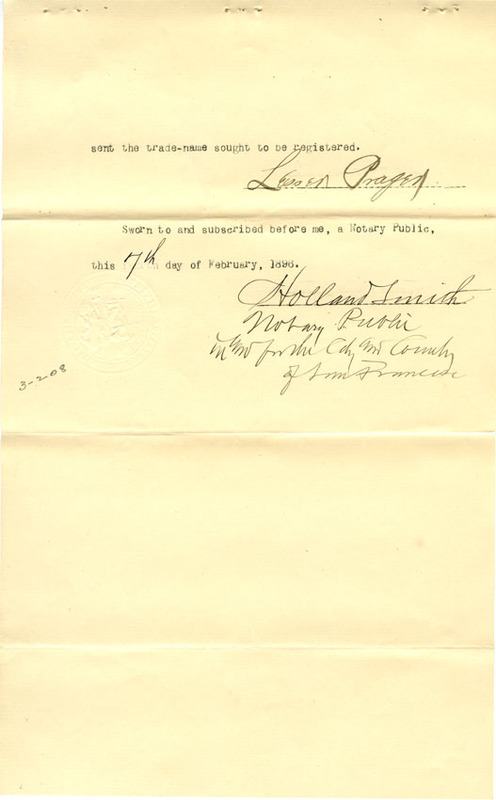 sent the trade-name sought to be registered.
Lesser Prager
Sworn to and subscribed before me, a Notary Public,
this 7th day of February, 1898.
Holland Smith
Notary Public
in and for the City and County
of San Francisco
3-208